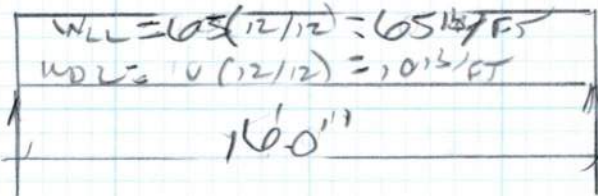 WLL = 65(12/12) = 65 lbs/FT
WDL = 10(12/12) = 10 lb/FT
16'-0"